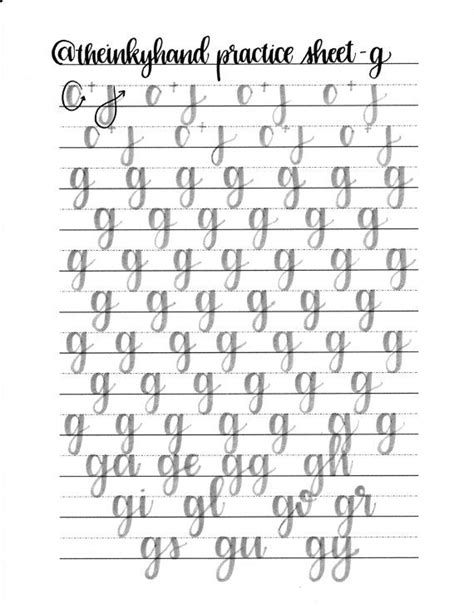 @theinkyhand practice sheet - g
o + j o + j o + j o + j
o + j o + j o + j o + j
g g g g g g g
g g g g g g
g g g g g g g
g g g g g g
g g g g g g g
g g g g g g
g g g g g g g
ga ge gg gh
gi gl go gr
gs gu gy